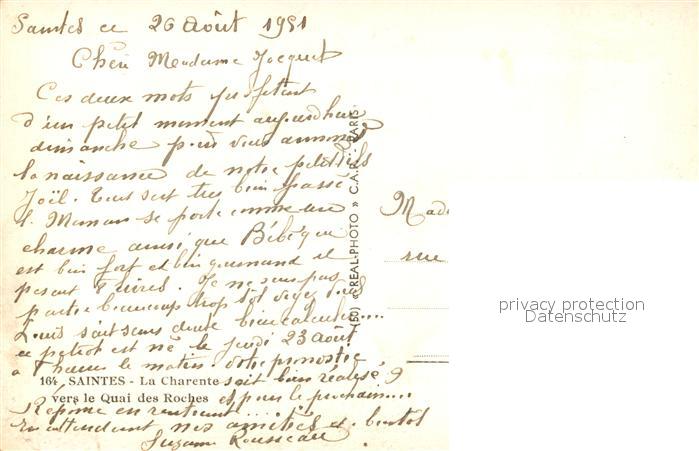 Saintes ce 26 Août 1951
Chère Madame Jocquet
Ces deux mots profitant
d'un petit moment aujourdhui
dimanche pour vous annoncer
la naissance de notre petit fils
Joël. Tous sont très bien passé
la Maman se porte comme un
charme ainsi que Bébé qui
est bien fort et bien gourmand il
pesant livres. Je ne suis pas
partie beaucoup trop tôt voyez vous
Louis sont sans doute bien calculer....
ce petiot est né le jeudi 23 août
à heures le matin. Votre pronostic
soit bien réalisé ?
et pour le prochain....
Réponse en rentrant .....
En attendant nos amitiés et bientôt
Suzanne Rousseau
164 SAINTES - La Charente
vers le Quai des Roches
(50) « REAL-PHOTO » C.A.P. - PARIS
Mada
rue
privacy protection
Datenschutz